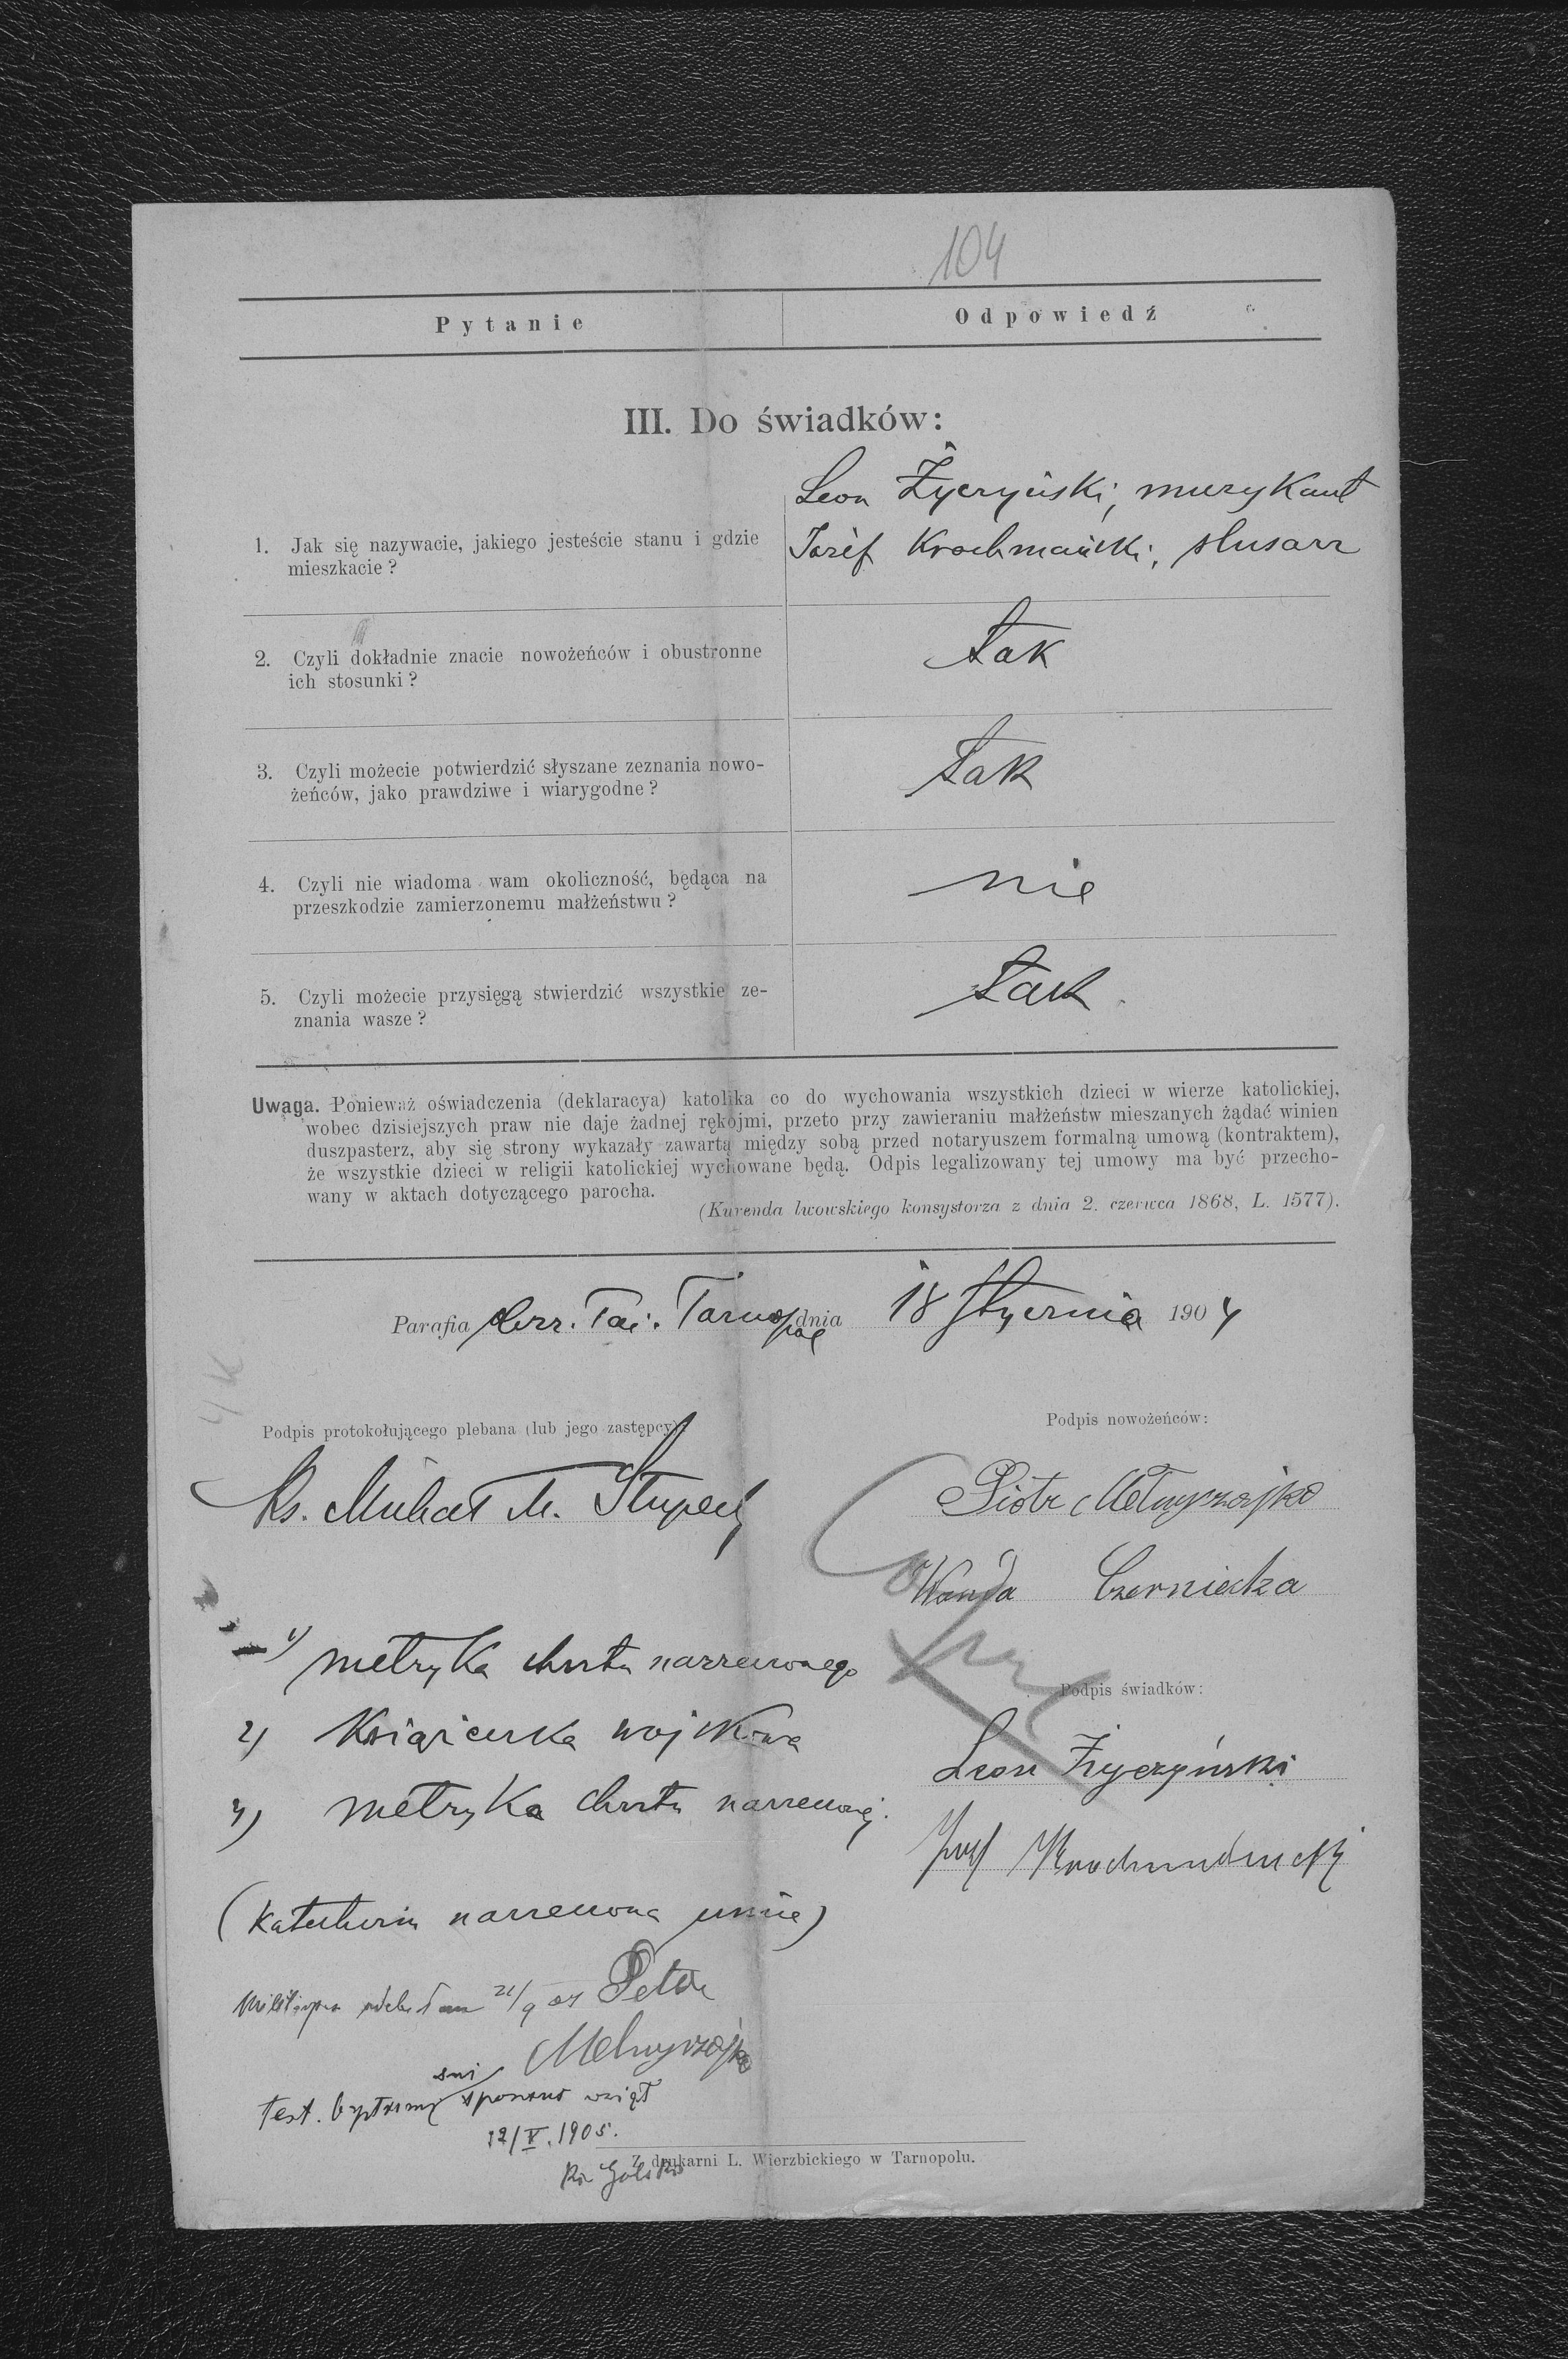 104
Pytanie Odpowiedź
III. Do świadków:
Leon Życzyński, muzykant
1. Jak się nazywacie, jakiego jesteście stanu i gdzie
mieszkacie?
Józef Krochmański, slusarz
2. Czyli dokładnie znacie nowożeńców i obustronne
ich stosunki?
tak
3. Czyli możecie potwierdzić słyszane zeznania nowo-
żeńców, jako prawdziwe i wiarygodne?
tak
4. Czyli nie wiadoma wam okoliczność, będąca na
przeszkodzie zamierzonemu małżeństwu?
nie
5. Czyli możecie przysięgą stwierdzić wszystkie ze-
znania wasze?
tak
Uwaga. Ponieważ oświadczenia (deklaracya) katolika co do wychowania wszystkich dzieci w wierze katolickiej,
wobec dzisiejszych praw nie daje żadnej rękojmi, przeto przy zawieraniu małżeństw mieszanych żądać winien
duszpasterz, aby się strony wykazały zawartą między sobą przed notaryuszem formalną umową (kontraktem),
że wszystkie dzieci w religii katolickiej wychowane będą. Odpis legalizowany tej umowy ma być przecho-
wany w aktach dotyczącego parocha.
(Kurenda lwowskiego konsystorza z dnia 2. czerwca 1868, L. 1577).
Parafia Tarnopol dnia 18 stycznia 1904
4 K
Podpis protokołującego plebana (lub jego zastępcy):
Podpis nowożeńców:
Ks. Michał M.
Piotr Melnyczajko
Wanda Czerniecka
1) metryka chrztu narzeczonego
Podpis świadków:
2) Książeczka wojskowa
Leon Życzyński
3) metryka chrztu narzeczonej.
Józef
(Katechizm narzeczona umie)
21/9 Petro
Melnyczajko
test.
12/V. 1905.
Z drukarni L. Wierzbickiego w Tarnopolu.